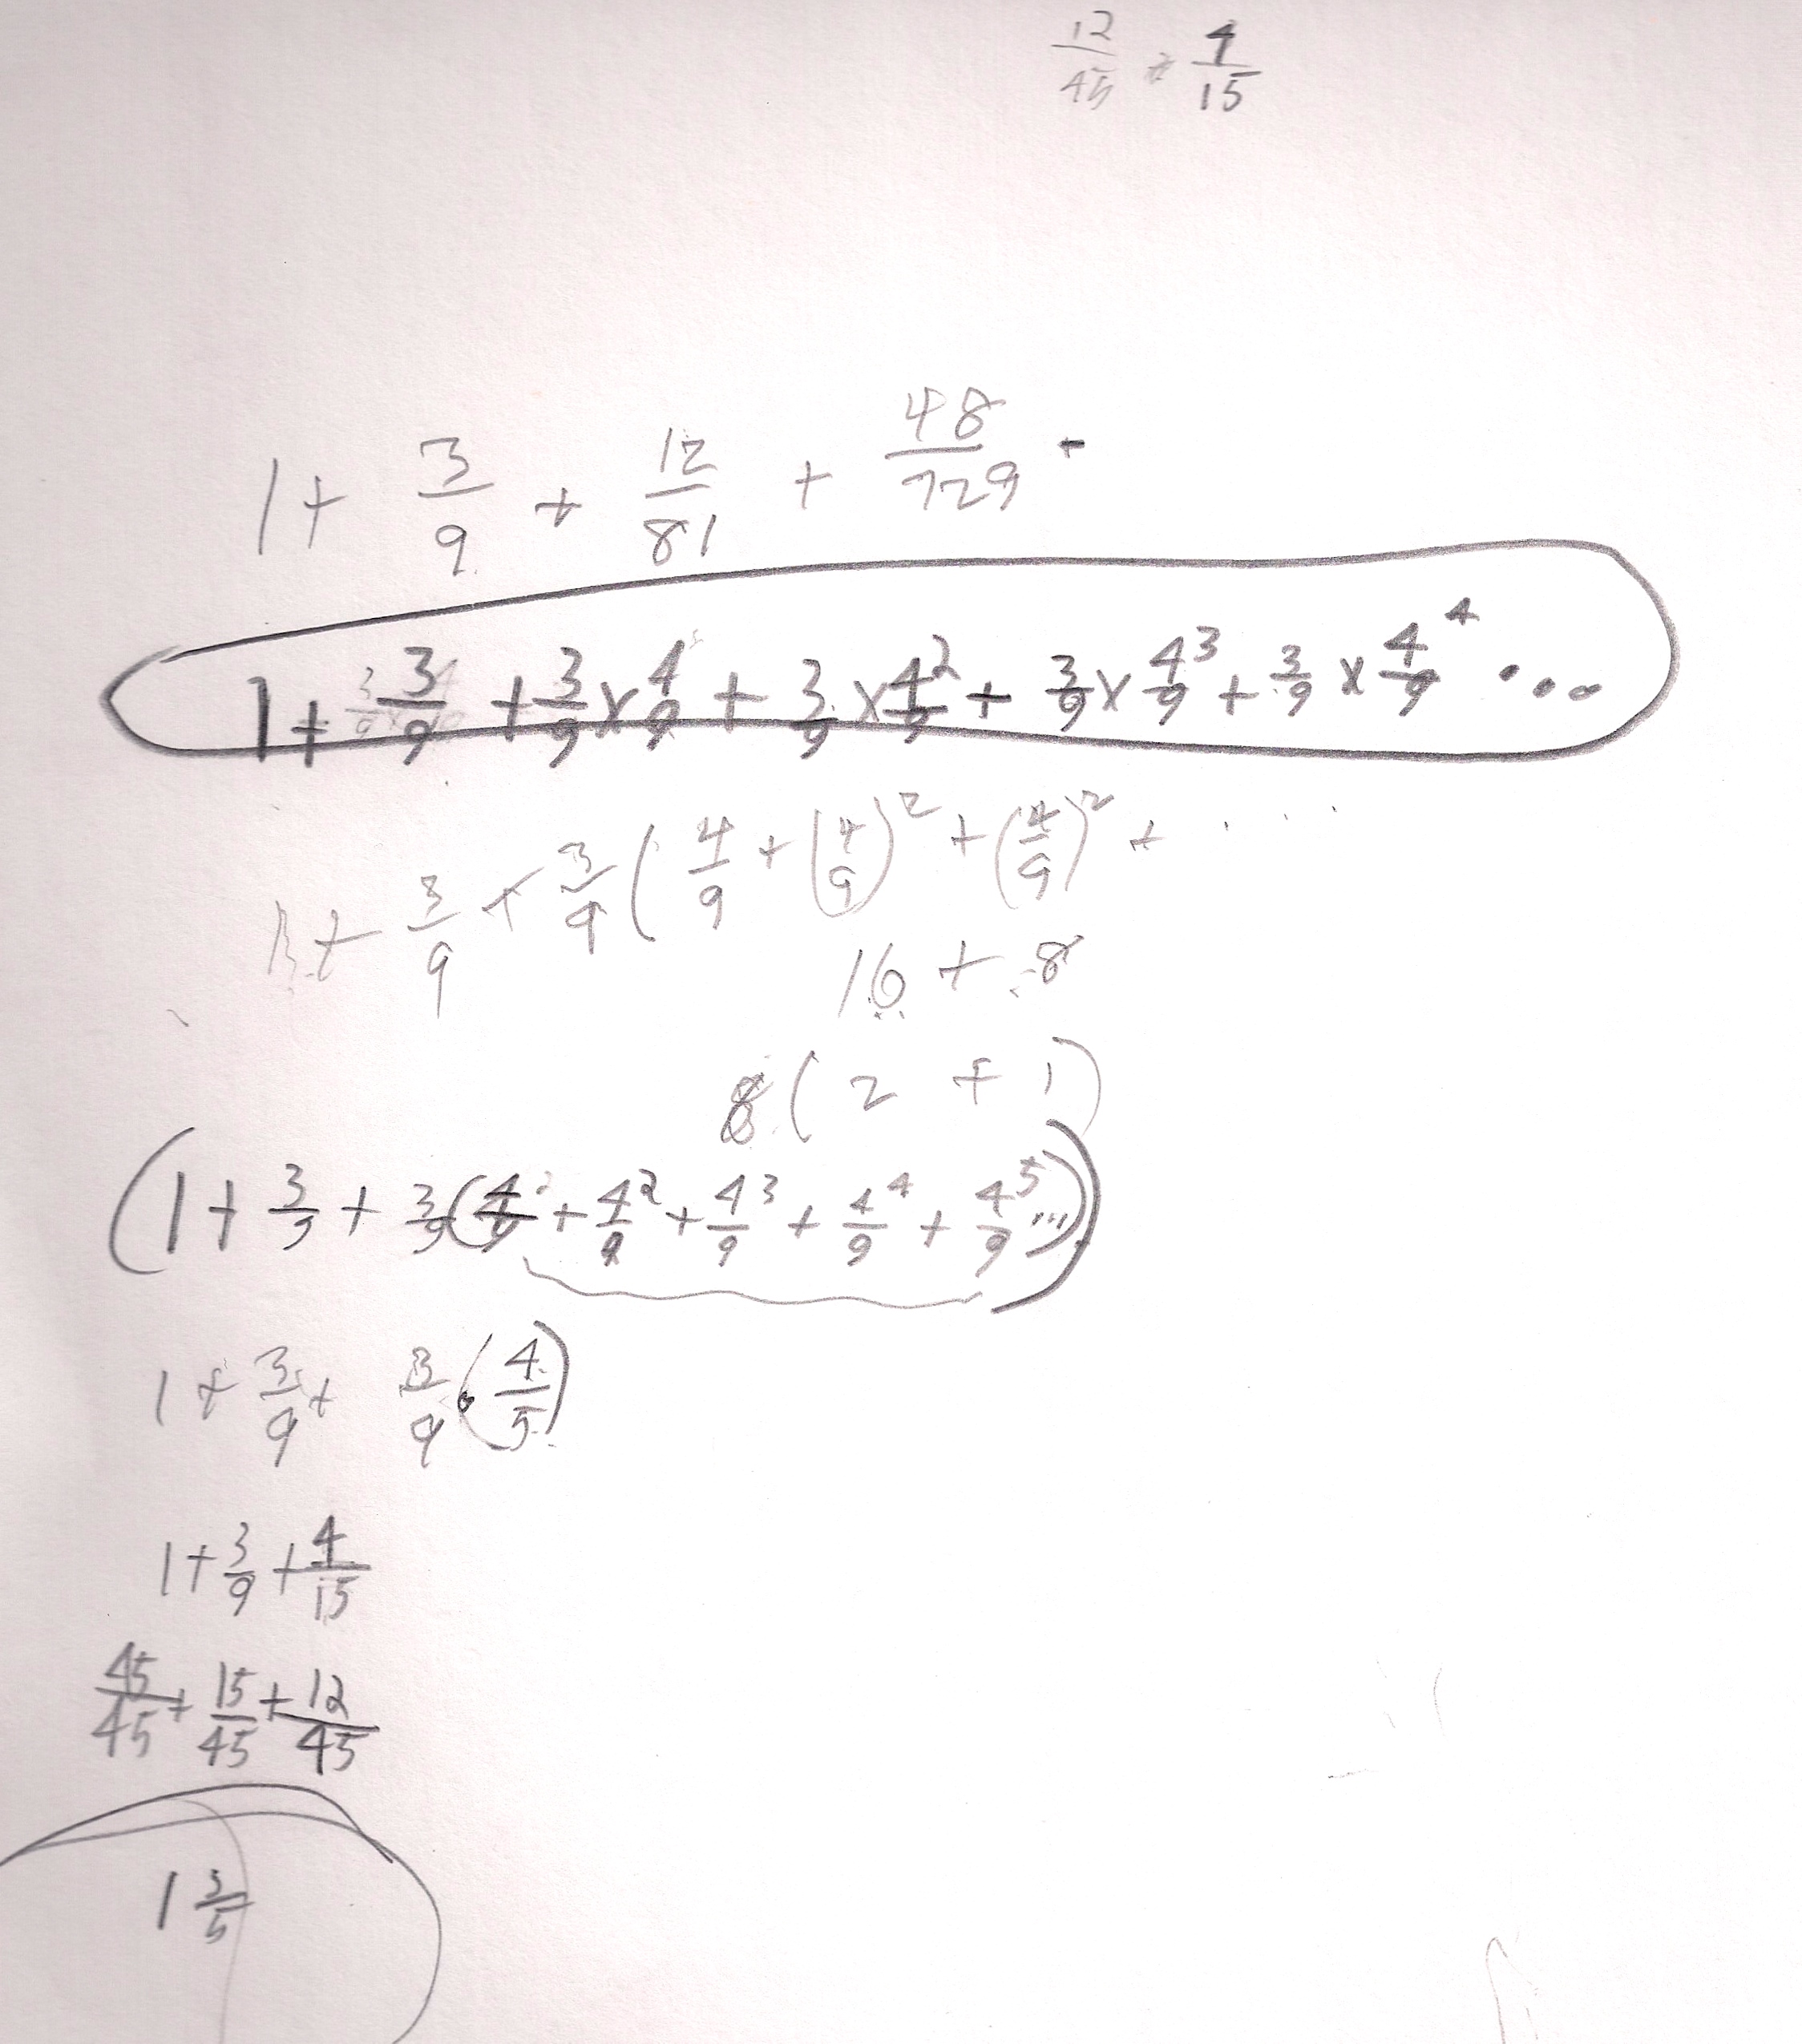 12/45 = 4/15
1 + 3/9 + 12/81 + 48/729 -
1 + 3/9 + 3/9 x 4/9 + 3/9 x 4/9^2 + 3/9 x 4/9^3 + 3/9 x 4/9^4 ...
1 + 3/9 + 3/9 ( 4/9 + (4/9)^2 + (4/9)^2 + ....
16 + 8
8 ( 2 + 1 )
(1 + 3/9 + 3/9 (4/9 + 4/9^2 + 4/9^3 + 4/9^4 + 4/9^5 ...))
1 + 3/9 + 3/9 • (4/5)
1 + 3/9 + 4/15
45/45 + 15/45 + 12/45
1 3/5